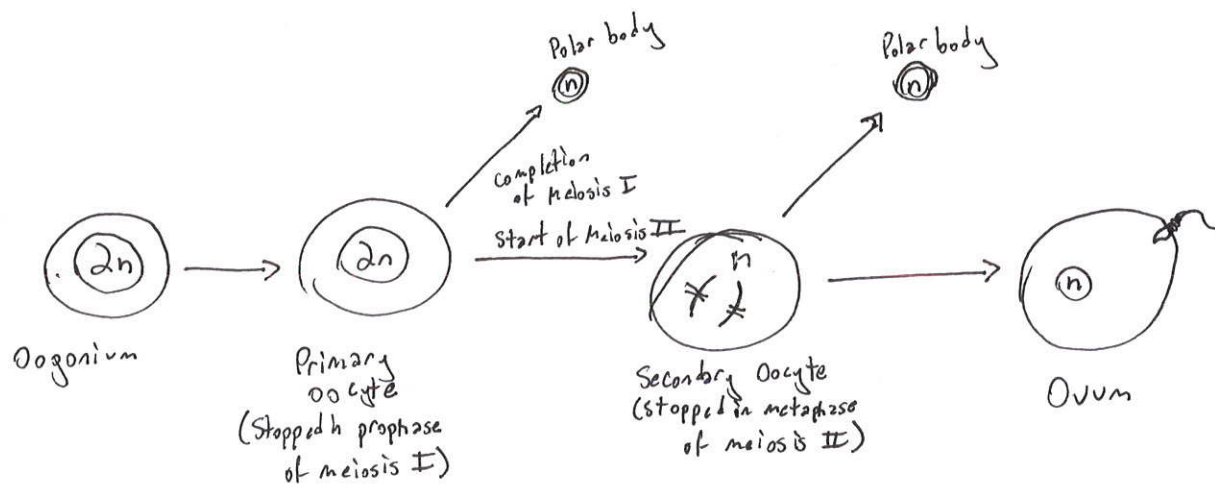 Polar body
n
Polar body
n
Completion
of Meiosis I
Start of Meiosis II
2n
2n
n
n
Oogonium
Primary
oocyte
(Stopped in prophase
of meiosis I)
Secondary Oocyte
(Stopped in metaphase
of meiosis II)
Ovum